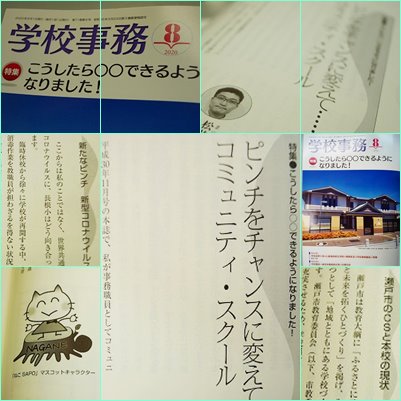 学校事務 8
2020
特集 こうしたら○○できるよう
なりました！
ンスに変えて……
ィ・スクール
松
新たなピンチ 新型コロナウイルス
ここからは私のことではなく、世界共通
コロナウイルスに、長根小はどう向き合っ
ます。
臨時休校から徐々に学校が再開する中、
消毒作業を教職員が担わざるを得ない状況
平成30年11月号の本誌で、私が事務職員としてコミュニ
特集●こうしたら○○できるようになりました！
ピンチをチャンスに変えて
コミュニティ・スクール
学校事務 8
特集 こうしたら○○できるように
なりました！
NAGANE
「ねこSAPO」マスコットキャラクター
瀬戸市のCSと本校の現状
瀬戸市は教育大綱に「ふるさとに
と未来を拓くひとづくり」を掲げ、
つとして「地域とともにある学校づ
す。瀬戸市教育委員会（以下、市教
実さ